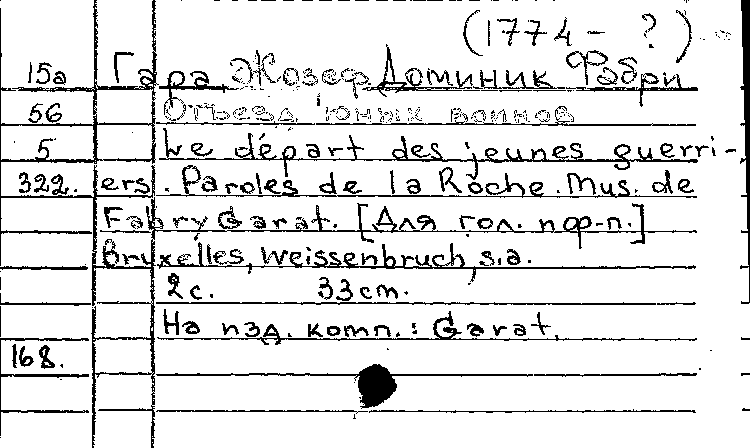 (1774 - ?)
15а Гара, Жозеф Доминик Фабри
56 Отъезд юных воинов
5 Le départ des jeunes guerri-
322. ers. Paroles de la Roche. Mus. de
Fabry Garat. [Для гол. п ф-п.]
Bruxelles, Weissenbruch, s.a.
2 с. 33 cm.
На пзд. комп.: Garat.
168.